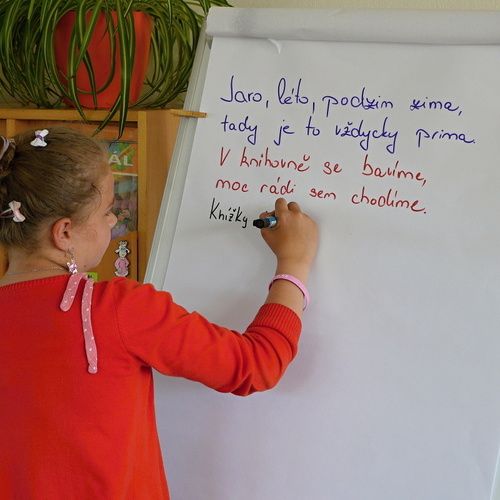 Jaro, léto, podzim zima,
tady je to vždycky prima.
V knihovně se bavíme,
moc rádi sem chodíme.
Knížky
ÁL